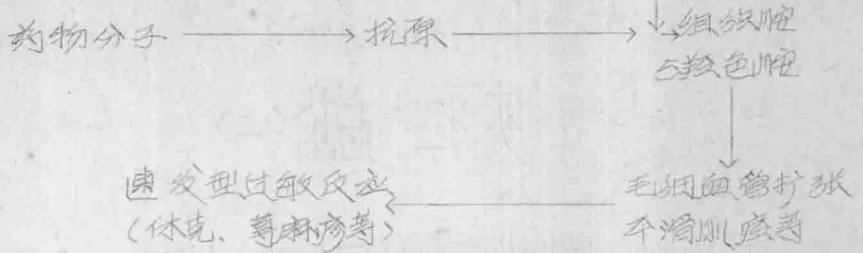 药物分子 → 抗原 → ↓→组织胺
5羟色胺
毛细血管扩张
平滑肌痉等
速发型过敏反应
(休克、荨麻疹等)